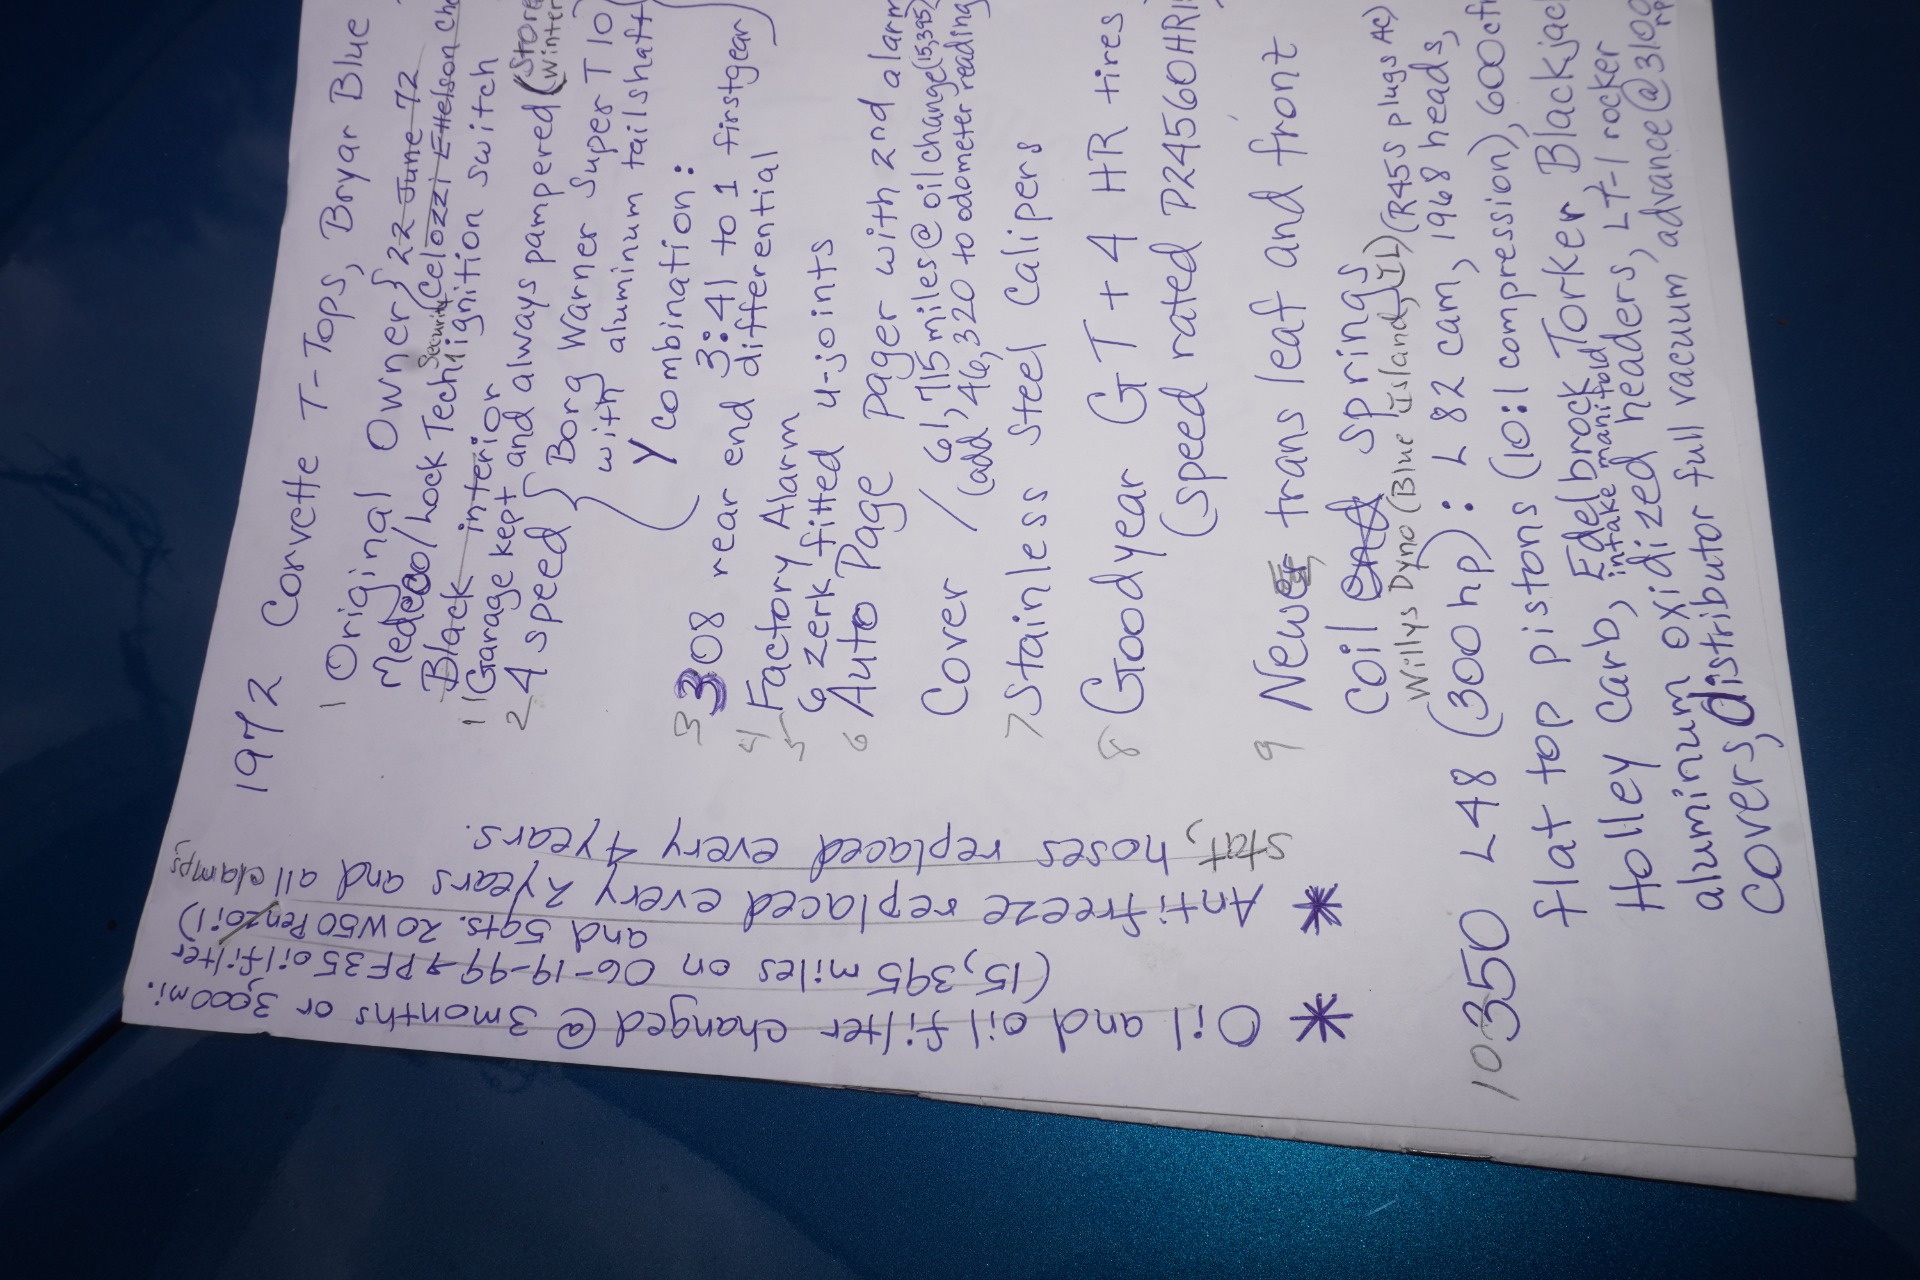 1972 Corvette T-Tops, Bryar Blue
1 Original Owner} 22 June 72
Medeco/Lock Tech Security (Celozzi Ettelson
Black interior ignition switch
11 Garage kept and always pampered (Store
winter
2 4 speed { Borg Warner Super T10
with aluminum tailshaft
Y combination:
3 308 rear end 3:41 to 1 firstgear
differential
4 Factory Alarm
5 6 zerk fitted u-joints
6 Auto Page Pager with 2nd alarm
Cover / 61,715 miles @ oil change (15,395)
(add 46,320 to odometer reading
7 Stainless Steel Calipers
8 Goodyear GT + 4 HR tires
(speed rated P24560HR
9 New trans leaf and front
coil springs
Willys Dyno (Blue Island, IL) (R45S plugs AC)
10 350 L48 (300hp): L82 cam, 1968 heads,
flat top pistons (10:1 compression), 600cfm
Holley carb, Edelbrock Torker Blackjack
intake manifold
aluminum oxidized headers, LT-1 rocker
covers, distributor full vacuum advance @ 3100
rp
* Oil and oil filter changed @ 3months or 3,000mi.
(15,395 miles on 06-19-99 → PF35 oil filter
and 5qts. 20W50 Penzoil)
* Antifreeze replaced every 2years and all clamps,
stat, hoses replaced every 4years.